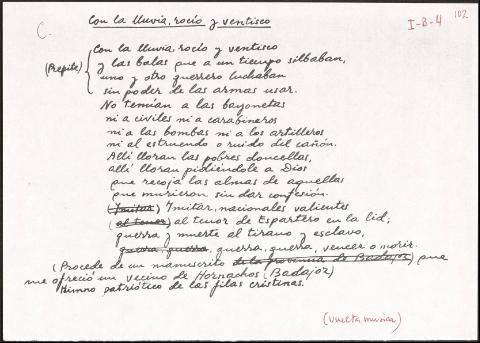 Con la lluvia, rocío y ventisco
I-B-4
102
C.
Con la lluvia, rocío y ventisco
(Repite)
y las balas que a un tiempo silbaban,
uno y otro guerrero luchaban
sin poder de las armas usar.
No temían a las bayonetas
ni a civiles ni a carabineros
ni a las bombas ni a los artilleros
ni al estruendo o ruido del cañón.
Allí lloran las pobres doncellas,
allí lloran pidiéndole a Dios
que recoja las almas de aquellas
que murieron sin dar confesión.
(Imitar) Imitar, nacionales valientes
(al tenor) al tenor de Espartero en la lid;
guerra y muerte al tirano y esclavo,
guerra, guerra, guerra, guerra, vencer o morir.
(Procede de un manuscrito de la provincia de Badajoz) que
me ofreció un vecino de Hornachos (Badajoz)
Himno patriótico de las filas cristinas.
(vuelta musica)